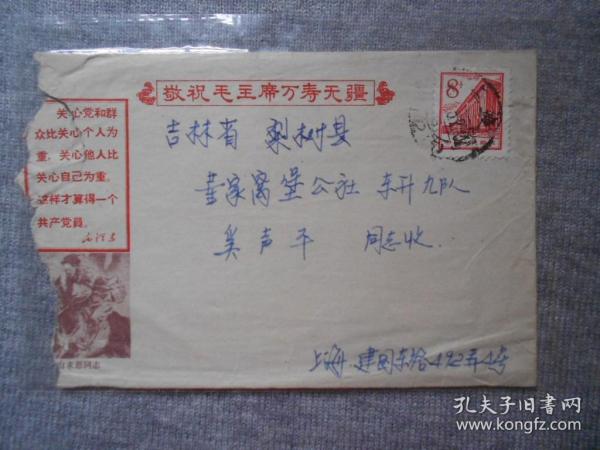 敬祝毛主席万寿无疆
8分
关心党和群
众比关心个人为
重，关心他人比
关心自己为重。
这样才算得一个
共产党员。
毛泽东
吉林省 梨树县
公社 东升九队
声平 同志收
求恩同志
上海 建国东路492弄4号
孔夫子旧书网
www.kongfz.com